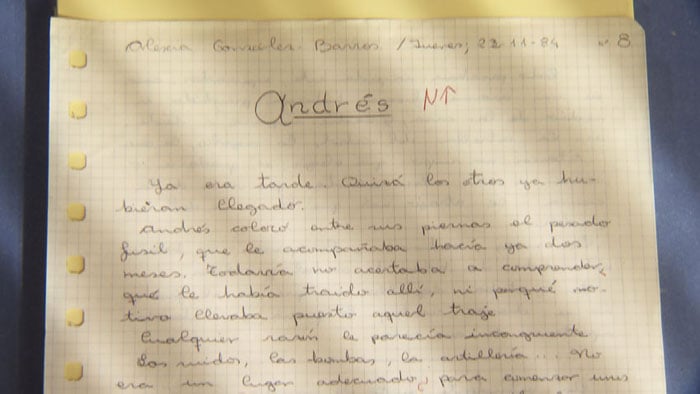 Alexia González-Barros / Jueves, 22-11-84 nº 8
Andrés N↑
Ya era tarde. Quizá los otros ya hu-
bieran llegado.
Andrés colocó entre sus piernas el pesado
fusil, que le acompañaba hacía ya dos
meses. Todavía no acertaba a comprender,
qué le había traido allí, ni porqué mo-
tivo llevaba puesto aquel traje
Cualquier razón le parecía incongruente
Los ruidos, las bombas, la artillería... No
era un lugar adecuado, para comenzar unos